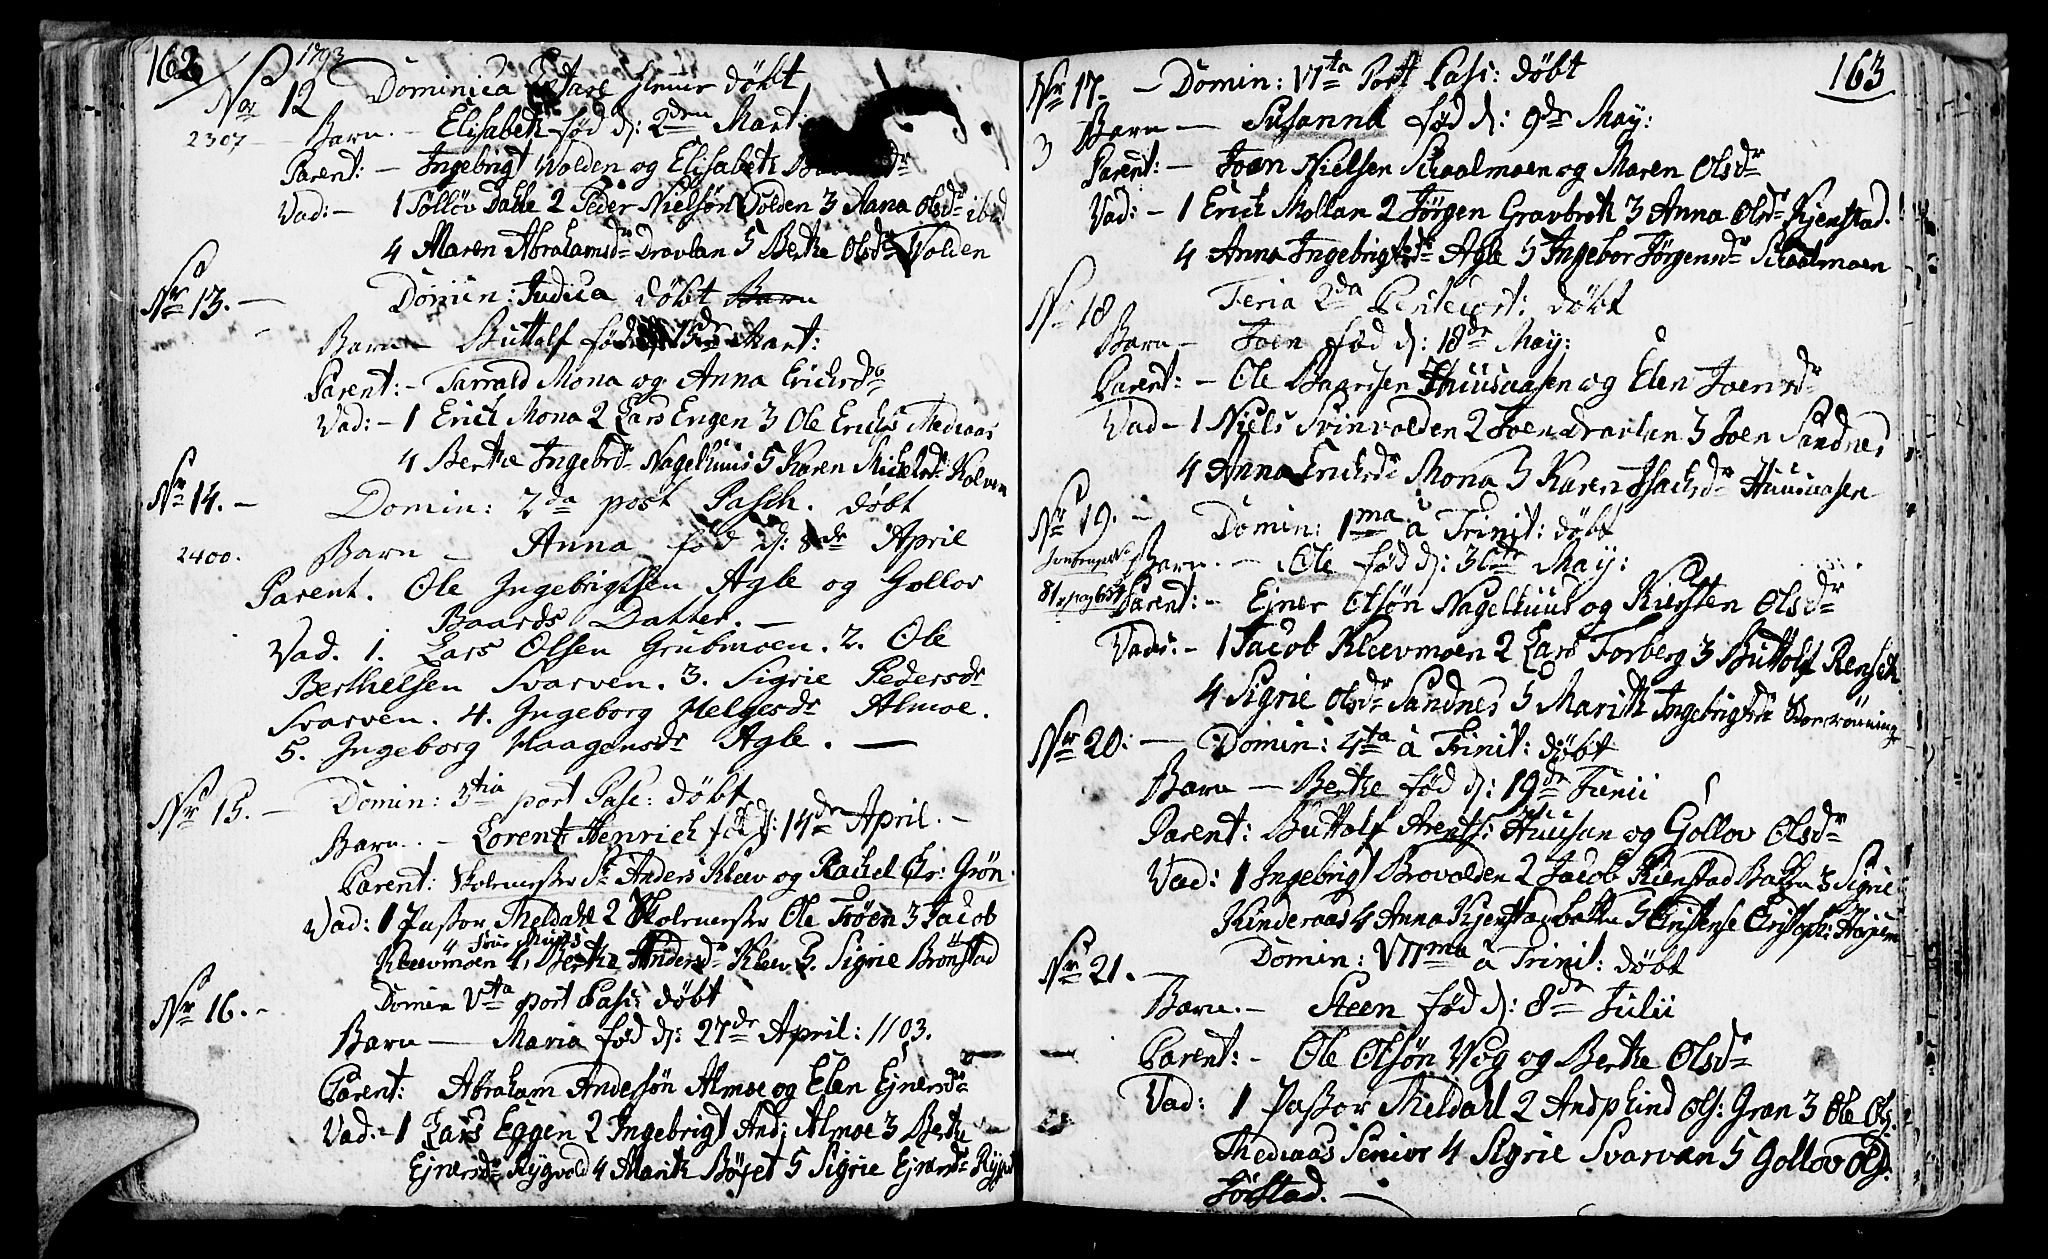 162
1793
No 12 Dominica døbt
2307 Barn. - Elisabeth fød d: 2den Mart:
Parent: - Ingebrigt Wolden og Elisabeth
Vad: - 1 Tolløv Dahle 2 Peder Nielsøn Volden 3 Anna Olsdr ibid
4 Maren Abrahamsdr Dravlan 5 Berthe Olsdr Volden
Nr 13. - Domin: Judica døbt Barn
Barn - Buttolf fød Mart:
Parent: - Tarrald Mona og Anna Ericksdr
Vad: - 1 Erick Mona 2 Lars Engen 3 Ole Ericks
4 Berthe Ingebrdr Nagelhuus 5 Karen Mickelsdr
Nr 14. - Domin: 2da post Pasch. døbt
2400. Barn - Anna fød d: 8de April
Parent. Ole Ingebrigtsen Agle og Gollov
Baards Datter. -
Vad. 1. Lars Olsen Grubmoen. 2. Ole
Berthelsen Svarven. 3. Sigrie Pedersdr
Svarven. 4. Ingeborg Helgesdr Almoe.
5. Ingeborg Haagensdr Agle. -
Nr 15. - Domin: 3tia post Pasc: døbt
Barn. - Lorentz Henrich fød d: 14de April. -
Parent: Skolemester Sr Anders Kleev og Rachel Chr: Grøn.
Vad: 1 Pastor Theldahl 2 Skolemester Ole Trøen 3 Jacob
Kleevmoen 4, Berthe Andersdr Kleev 5. Sigrie Brønstad
Nr 16. - Domin Vta post Pasc: døbt
Barn - Maria fød d: 27de April: 1103.
Parent: Abraham Andersøn Almoe og Elen Ejnersdr
Vad. - 1 Lars Eggen 2 Ingebrigt And: Almoe 3 Berthe
Ejnersdr Rygvold 4 Marith Bøjet 5 Sigrie Ejnersdr
163
Nr 17. - Domin: VIta Post Pasc: døbt
3 Barn - Susanna fød d: 9de May:
Parent: - Joen Nielsen Skaalmoen og Maren Olsdr
Vad: - 1 Erick Mollan 2 Jørgen Gravbrøt 3 Anna Olsdr Kjenstad.
4 Anna Ingebrigtsdr Agle 5 Ingebor Jørgensdr Skaalmoen
Nr 18 Feria 2da Pentecost: døbt
Barn - Joen fød d: 18de May:
Parent: - Ole Baardsen Huusaasen og Elen Joensdr
Vad - 1 Niels Svinvolden 2 Joen Dravlan 3 Joen Sandnes
4 Anna Ericksdr Mona 5 Karen Isacksdr Huusaasen
Nr 19. - Domin: 1ma à Trinit: døbt
Barn. - Ole fød d: May:
Parent: - Ejner Olsøn Nagelhuus og Kiersten Olsdr
Vad: - 1 Jacob Kleevmoen 2 Lars Forberg 3 Buttolf
4 Sigrie Olsdr Sandnes 5 Marith Ingebrigtsdr
Nr 20: - Domin: 4ta à Trinit: døbt
Barn - Berthe fød d: 19de Junii
Parent: Buttolf Arents: Huusan og Gollov Olsdr
Vad: 1 Ingebrigt Brovolden 2 Jacob Kienstad 3 Sigrie
Kinderaas 4 Anna Kjenstad 5
Nr 21. - Domin: VIIma à Trinit: døbt
Barn. - Steen fød d: 8de Julii
Parent: - Ole Olsøn Vog og Berthe Olsdr
Vad: 1 Pastor Theldahl 2 Andphind Ols: Gran 3 Ole Ols:
Thedraas Senior 4 Sigrie Svarvan 5 Gollov Ols:
Jørstad. -